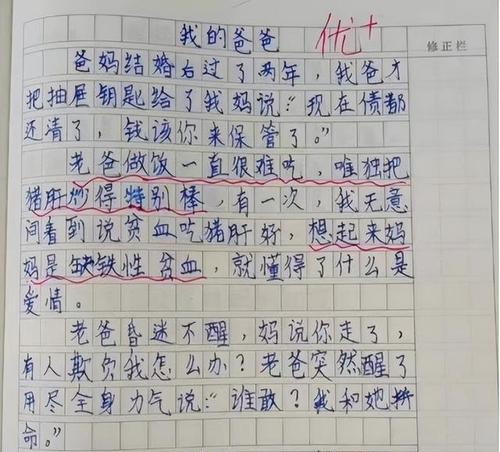 我的爸爸 优+
修正栏
爸妈结婚后过了两年，我爸才
把抽屉钥匙给了我妈说：“现在债都
还清了，钱该你来保管了。”
老爸做饭一直很难吃，唯独把
猪肝炒得特别棒，有一次，我无意
间看到说贫血吃猪肝好，想起来妈
妈是缺铁性贫血，就懂得了什么是
爱情。
老爸昏迷不醒，妈说你走了，
有人欺负我怎么办？老爸突然醒了
用尽全身力气说：“谁敢？我和她拚
命。”